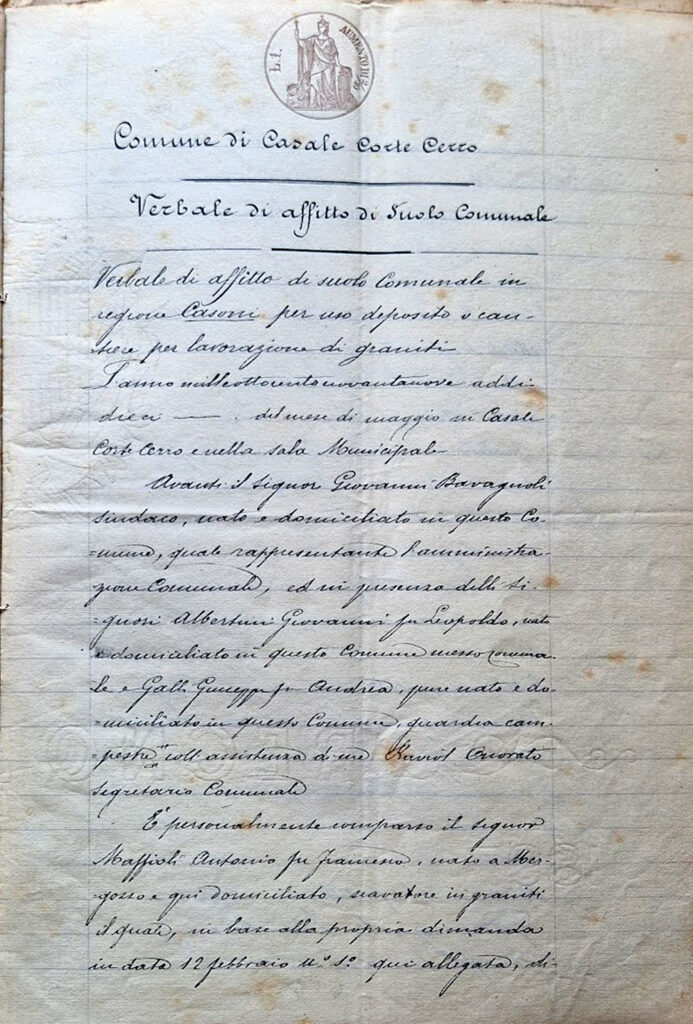 L. 1.
AUMENTO DI 2/10
Comune di Casale Corte Cerro
Verbale di affitto di Suolo Comunale
Verbale di affitto di suolo Comunale in
regione Casoni per uso deposito o can-
tiere per lavorazione di graniti
L'anno milleottocentonovantanove addi
dieci —— del mese di maggio in Casale
Corte Cerro e nella sala Municipale
Avanti il Signor Giovanni Bavagnoli
sindaco, nato e domiciliato in questo Co-
=mune, quale rappresentante l'amministra-
zione Comunale, ed in presenza delli Si-
=gnori Albertini Giovanni fu Leopoldo, nato
e domiciliato in questo Comune messo comuna-
le e Galli Giuseppe fu Andrea, pure nato e do-
=miciliato in questo Comune, guardia cam-
=pestre coll'assistenza di me Onorato
Segretario Comunale
È personalmente comparso il Signor
Maffioli Antonio fu Francesco, nato a Mer-
gozzo e qui domiciliato, scavatore in graniti
il quale, in base alla propria dimanda
in data 12 febbraio qui allegata, di-